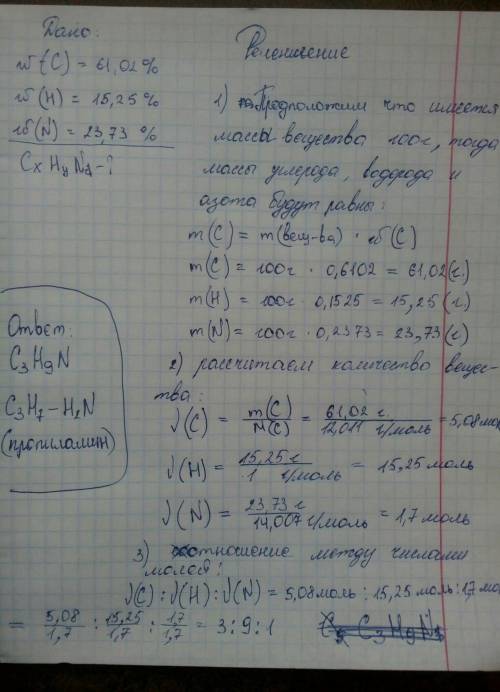 Дано:
w(C) = 61,02 %
w(H) = 15,25 %
w(N) = 23,73 %
CxHyNz - ?
Ответ:
C3H9N
C3H7-H2N
(пропиламин)
Решение
1) Предположим что имеется
масса вещества 100г, тогда
массы углерода, водорода и
азота будут равны:
m(C) = m(вещ-ва) · w(C)
m(C) = 100г · 0,6102 = 61,02(г.)
m(H) = 100г · 0,1525 = 15,25(г)
m(N) = 100г · 0,2373 = 23,73(г)
2) рассчитаем количество вещес-
тва:
ν(C) = m(C)/M(C) = 61,02 г./12,011 г/моль = 5,08мол
ν(H) = 15,25 г/1 г/моль = 15,25 моль
ν(N) = 23,73 г/14,007 г/моль = 1,7 моль
3) отношение между числами
молей:
ν(C) : ν(H) : ν(N) = 5,08моль : 15,25 моль : 1,7 мо
= 5,08/1,7 : 15,25/1,7 : 1,7/1,7 = 3:9:1